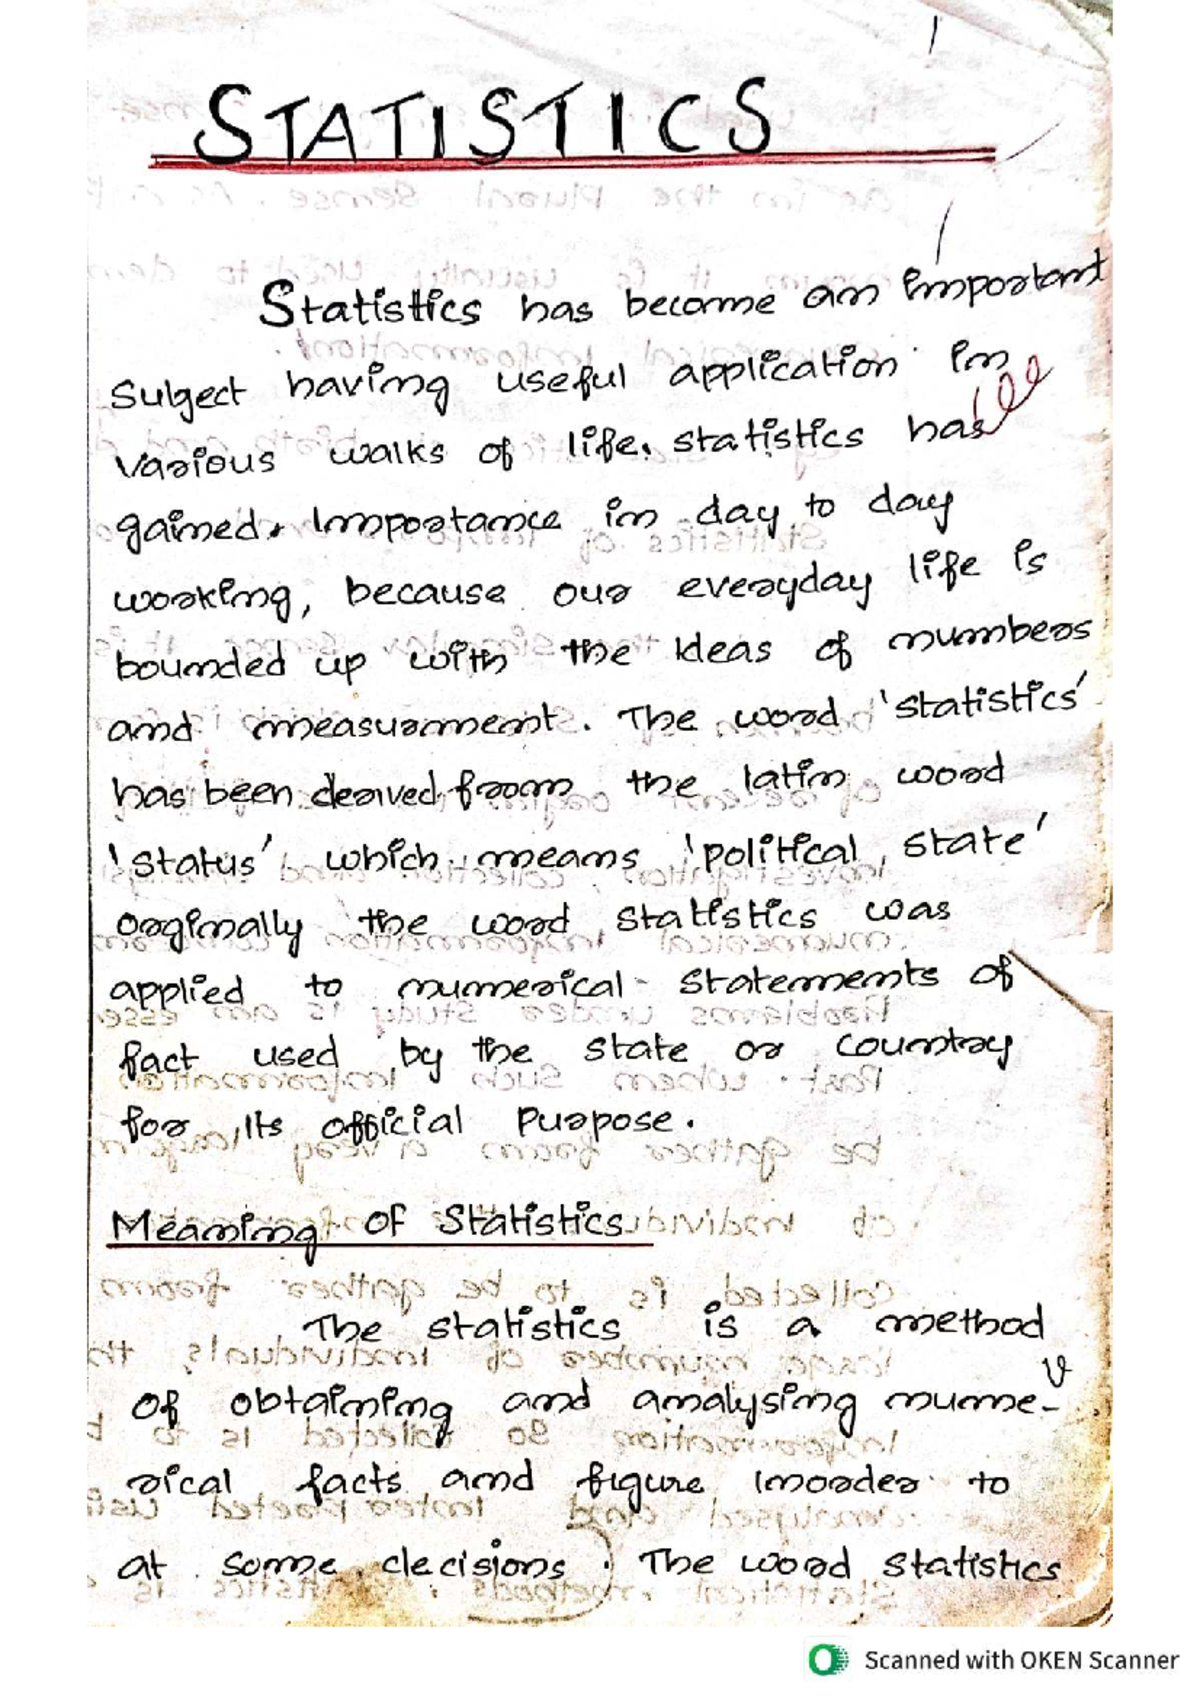 STATISTICS
Statistics has become an important
Subject having useful application in
various walks of life. statistics has
gained Importance in day to day
working, because our everyday life is
bounded up with the Ideas of numbers
and measurnment. The word 'statistics'
has been derived from the latin word
'status' which means 'political state'
orginally the word statistics was
applied to numerical statements of
fact used by the state or country
for Its official Purpose.
Meaning OF Statistics
The statistics is a method
of obtaining and analysing nume-
rical facts and figure Inorder to
at some decisions. The word statistics
Scanned with OKEN Scanner